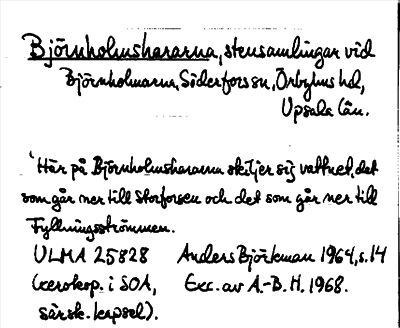 Björnholmshararna, stensamlingar vid
Björnholmarna, Söderfors sn, Örbyhus hd,
Upsala län.
'Här på Björnholmshararna skiljer sig vattnet, det
som går ner till Storforsen och det som går ner till
Fyllningsströmmen.
ULMA 25828 Anders Björkman 1964, s. 14
(xerokop. i SOA, Exc. av A.-B. H. 1968.
särsk. kapsel).